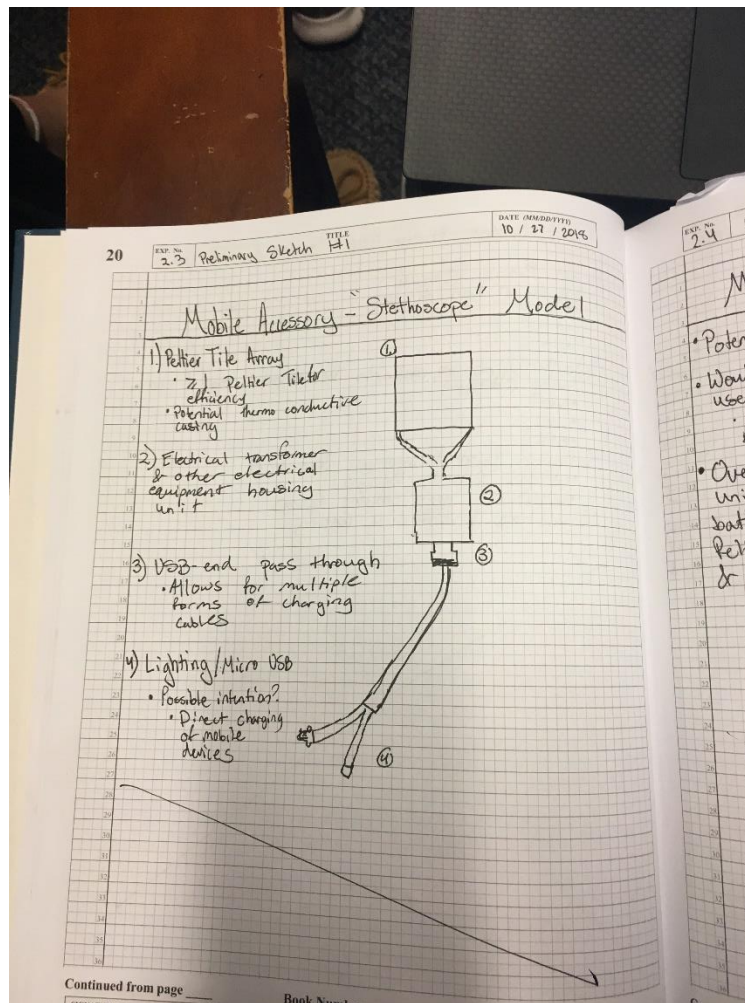 20
EXP. No.
2.3
TITLE
Preliminary Sketch #1
DATE (MM/DD/YYYY)
10 / 27 / 2018
Mobile Accessory - "Stethoscope" Model
1.) Peltier Tile Array
• ≥ 1 Peltier Tile for
efficiency
• Potential thermo conductive
casing
2) Electrical transformer
& other electrical
equipment housing
unit
3) USB-end pass through
• Allows for multiple
forms of charging
cables
4) Lighting/Micro USB
• Possible intention?
• Direct charging
of mobile
devices
1
2
3
4
Continued from page
EXP. No.
2.4
• Poten
• Wou
use
• Ove
uni
bat
Pel
or